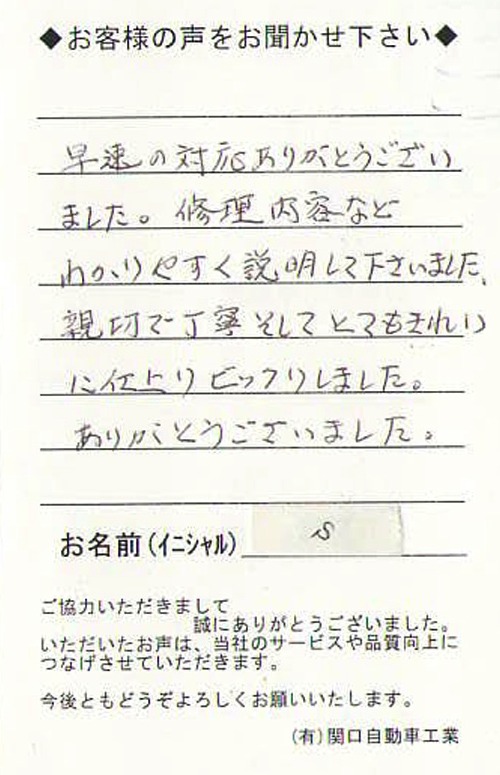 ◆お客様の声をお聞かせ下さい◆
早速の対応ありがとうござい
ました。修理内容など
わかりやすく説明して下さいました、
親切で丁寧そしてとてもきれい
に仕上りビックリしました。
ありがとうございました。
お名前(イニシャル) S
ご協力いただきまして
誠にありがとうございました。
いただいたお声は、当社のサービスや品質向上に
つなげさせていただきます。
今後ともどうぞよろしくお願いいたします。
(有)関口自動車工業